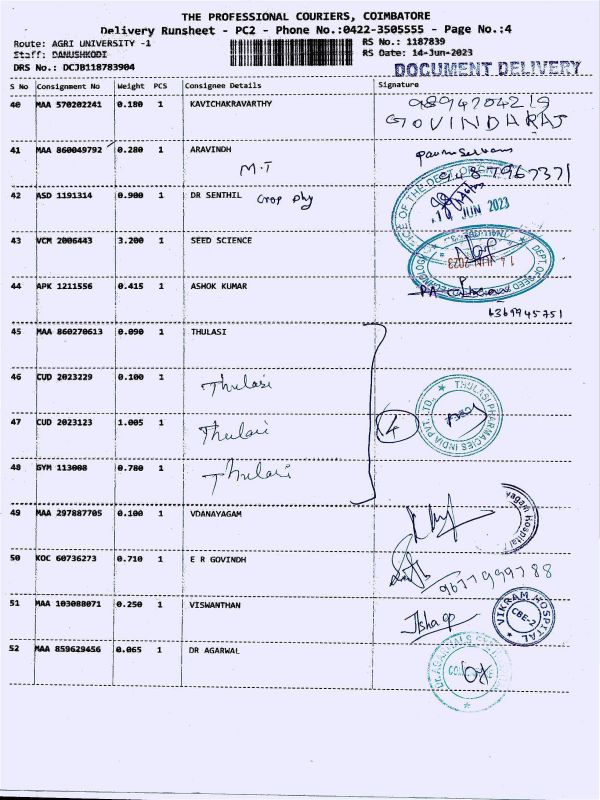 THE PROFESSIONAL COURIERS, COIMBATORE
Delivery Runsheet - PC2 - Phone No.:0422-3505555 - Page No.:4
Route: AGRI UNIVERSITY -1
RS No.: 1187839
Staff: DANUSHKODI
RS Date: 14-Jun-2023
DRS No.: DCJB118783904
DOCUMENT DELIVERY
S No Consignment No Weight PCS Consignee Details Signature
40 MAA 570202241 0.180 1 KAVICHAKRAVARTHY
9894704219
GOVINDHARAJ
41 MAA 860049792 0.280 1 ARAVINDH
M.T
9487967371
42 ASD 1191314 0.900 1 DR SENTHIL Crop phy
JUN 2023
43 VCM 2006443 3.200 1 SEED SCIENCE
14 JUN 2023
DEPT. OF SEED
44 APK 1211556 0.415 1 ASHOK KUMAR
6369945751
45 MAA 860270613 0.090 1 THULASI
46 CUD 2023229 0.100 1 Thulasi
47 CUD 2023123 1.005 1 Thulasi
4
THULASI PHARMACIES INDIA PVT. LTD.
48 GYM 113008 0.780 1 Thulasi
49 MAA 297887705 0.100 1 VDANAYAGAM
yagam Hospital
50 KOC 60736273 0.710 1 E R GOVINDH
9677999788
51 MAA 103088071 0.250 1 VISWANTHAN
VIKRAM HOSPITAL
CBE-2
52 MAA 859629456 0.065 1 DR AGARWAL